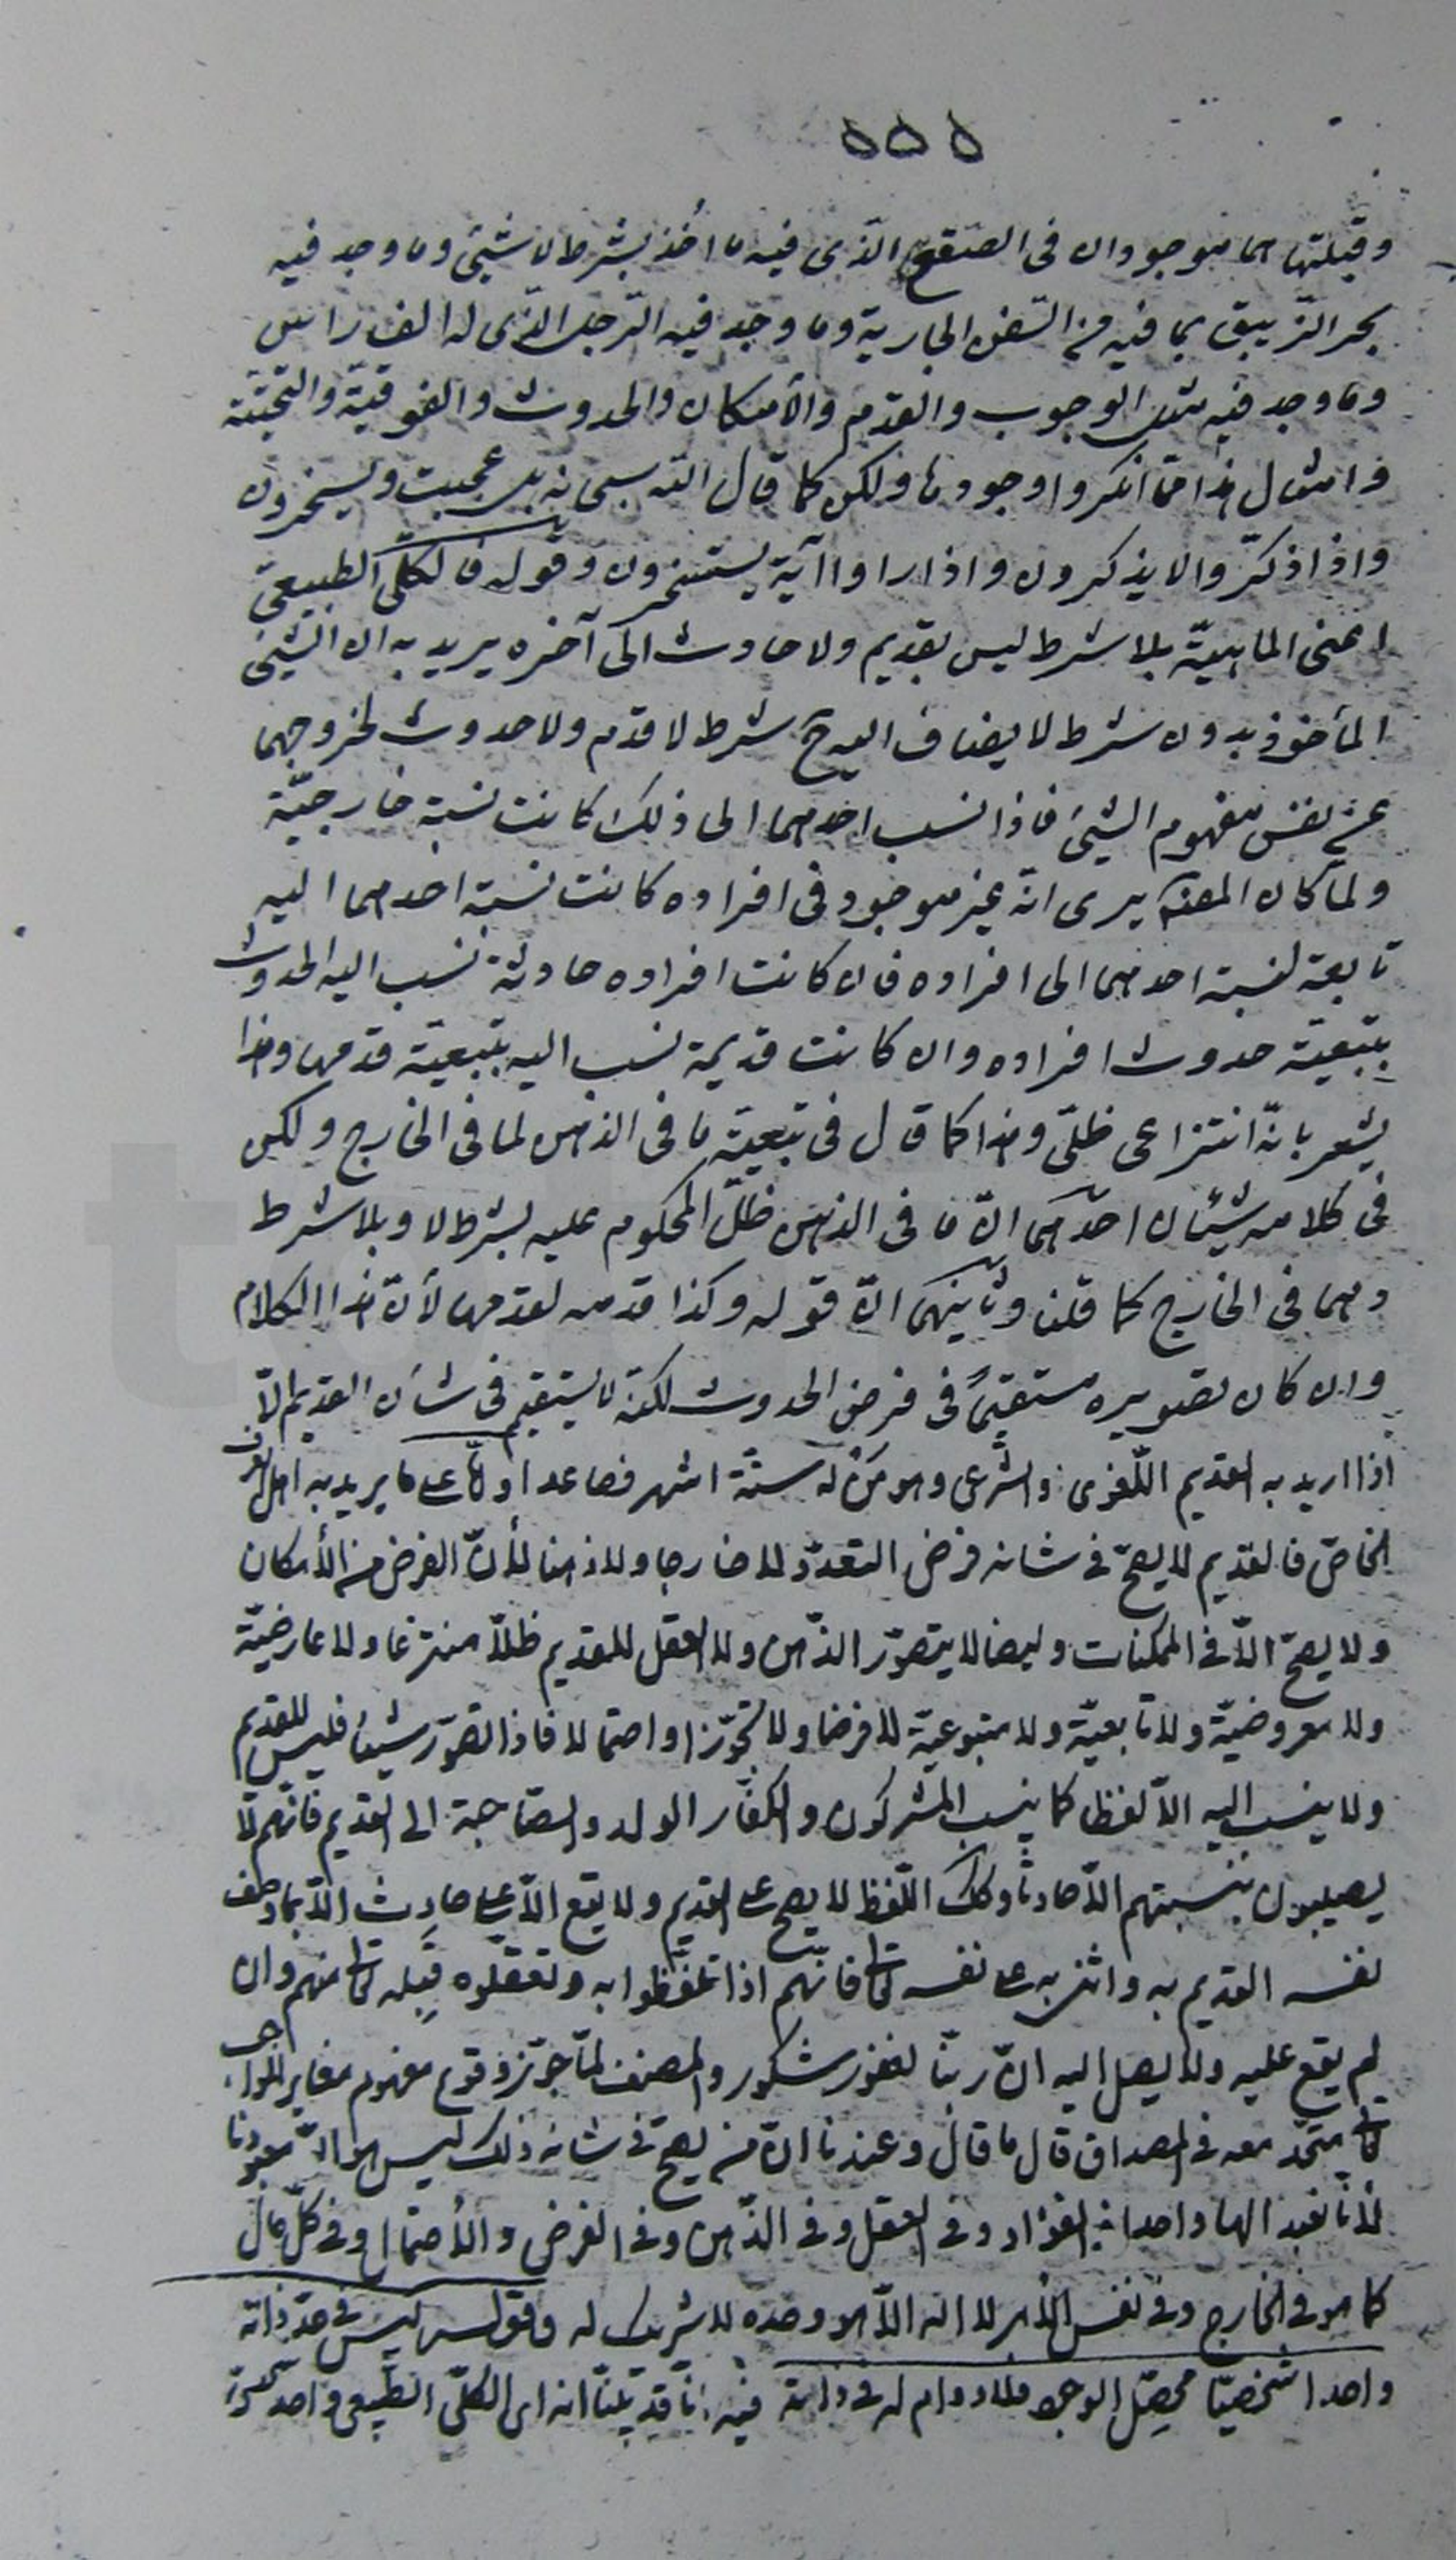 ٥٥٥
وقبلتها هما موجودان فى الصقع الّذى فيه ما اُخذ بشرط لا شيئ وما وجد فيه
بحر الزّيبق بما فيه من السّفن الجارية وما وجد فيه الرّجل الّذى له الف راس
وما وجد فيه مثل الوجوب والقدم والأمكان والحدوث والفوقيّة والتّحتيّة
وامثال هذا ممّا انكروا وجودها ولكن كما قال الله سبحانه بل عجبت ويسخرون
واذا ذكّروا لا يذكرون واذا راوا آية يستسخرون وقوله فالكلّى الطبيعى
اعنى الماهيّة بلا شرط ليس بقديم ولا حادث الى آخره يريد به ان الشيئ
المأخوذ بدون شرط لا يضاف اليه ح شرط لا قدم ولا حدوث لخروجهما
عن نفس مفهوم الشيئ فاذا نسب احدهما الى ذلك كانت نسبة خارجيّة
ولمّا كان المصنّف يرى انّه غير موجود فى افراده كانت نسبة احدهما اليه
تابعة لنسبة احدهما الى افراده فان كانت افراده حادثة نسب اليه الحدوث
بتبعيّة حدوث افراده وان كانت قديمة نسب اليه بتبعيّة قدمها وهذا
يشعر بانّه انتزاعى ظلّى وهذا كما قال فى تبعيّة ما فى الذهن لما فى الخارج ولكن
فى كلامه شيئان احدهما انّ ما فى الذهن ظلّ المحكوم عليه بشرط لا وبلا شرط
وهما فى الخارج كما قلنا وثانيهما انّ قوله وكذا قدمه لقدمها لأنّ هذا الكلام
وان كان تصويره مستقيمًا فى فرض الحدوث لكنّه لا يستقيم فى شأن القديم الّا
اذا اريد به القديم اللّغوى والشّرعى وهو من له ستّة اشهر فصاعدا وامّا على ما يريد به اهل العرف
الخاصّ فالقديم لا يصحّ فى شانه فرض التعدّد لا خارجا ولا ذهنا لأنّ الفرض من الأمكان
ولا يصحّ الّا فى الممكنات وايضا لا يتصوّر الذّهن ولا العقل للقديم ظلّا منتزعا ولا عارضيّة
ولا معروضيّة ولا تابعيّة ولا متبوعيّة لا فرضا ولا تجوّزا واحتمالا فاذا تصوّر شيئا فليس للقديم
ولا ينسب اليه الّا لفظا كما ينسب المشركون والكفّار الولد والصّاحبة الى القديم فانّهم لا
يصيبون بنسبتهم الّا حادثًا وكك اللّفظ لا يصحّ على القديم ولا يقع الّا على حادِث الّا بما وصف
نفسه القديم به واثنى به على نفسه تعالى فانّهم اذا تلفّظوا به وتعقّلوه قبِله تعالى منهم وان
لم يقع عليه ولا يصل اليه انّ ربّنا لغفور شكور والمصنف لمّا جوّز وقوع مفهوم مغاير للواجب
تعالى متّحد معه فى المصداق قال ما قال وعندنا انّ من يصحّ فى شانه ذلك ليس هو الّا معبودنا
لأنّا نعبد الها واحدا فى الفؤاد وفى العقل وفى الذّهن وفى الفرض والأحتمال وفى كلّ حال
كما هو فى الخارج وفى نفس الأمر لا اله الّا هو وحده لا شريك له وقوله ليس فى حدّ ذاته
واحدا شخصيّا محصّل الوجود فلا دوام له فى ذاته فيه انّا قد بيّنّا انه اى الكلّى الطّبيعى واحد